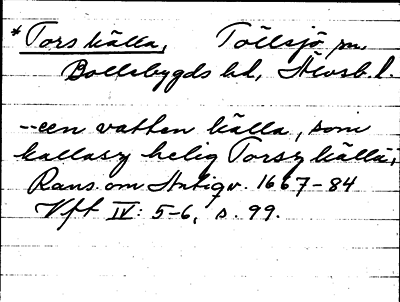 *Tors källa, Töllsjö sn.
Bollebygds hd, Älvsb. l.
--een vatten källa, som
kallasz helig Torsz källa;
Rans. om Antiqv. 1667-84
Vft IV: 5-6, s. 99.